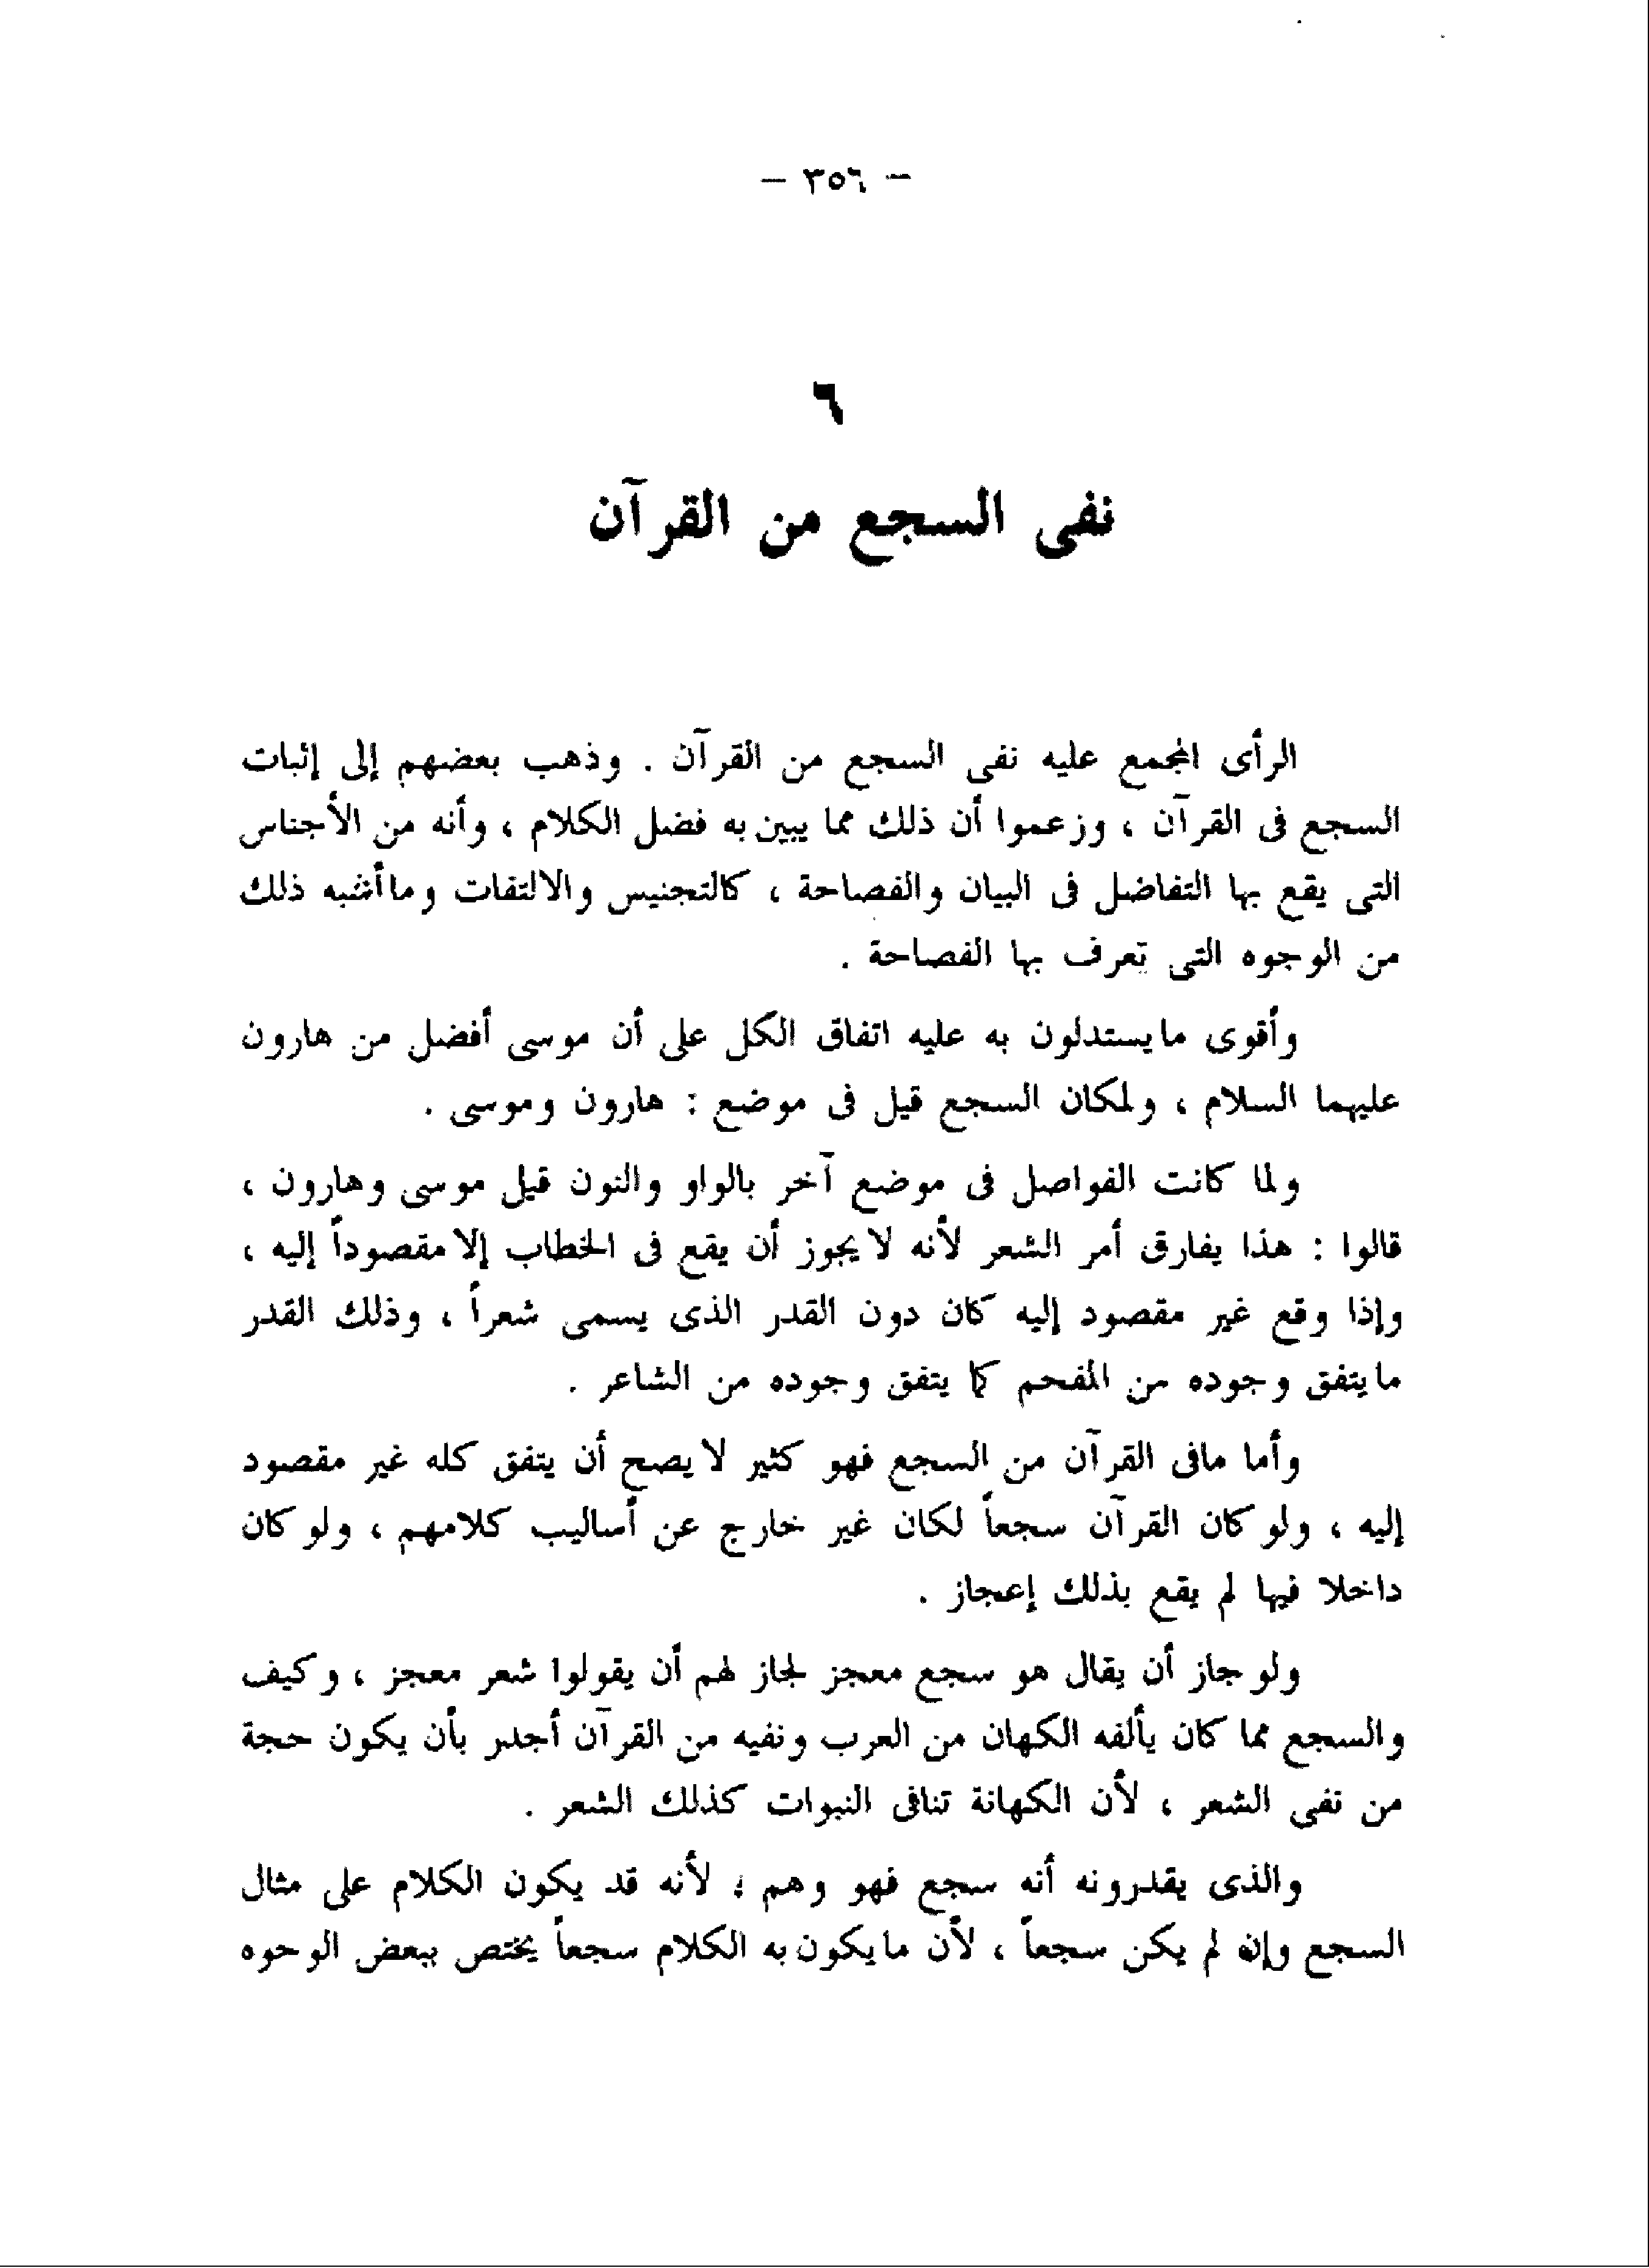 — ٣٥٦ —
٦
نفى السجع من القرآن
الرأى المجمع عليه نفى السجع من القرآن . وذهب بعضهم إلى إثبات
السجع فى القرآن ، وزعموا أن ذلك مما يبين به فضل الكلام ، وأنه من الأجناس
التى يقع بها التفاضل فى البيان والفصاحة ، كالتجنيس والالتفات وما أشبه ذلك
من الوجوه التى تعرف بها الفصاحة .
وأقوى ما يستدلون به عليه اتفاق الكل على أن موسى أفضل من هارون
عليهما السلام ، ولمكان السجع قيل فى موضع : هارون وموسى .
ولما كانت الفواصل فى موضع آخر بالواو والنون قيل موسى وهارون ،
قالوا : هذا يفارق أمر الشعر لأنه لا يجوز أن يقع فى الخطاب إلا مقصوداً إليه ،
وإذا وقع غير مقصود إليه كان دون القدر الذى يسمى شعراً ، وذلك القدر
ما يتفق وجوده من المفحم كما يتفق وجوده من الشاعر .
وأما مافى القرآن من السجع فهو كثير لا يصح أن يتفق كله غير مقصود
إليه ، ولو كان القرآن سجعاً لكان غير خارج عن أساليب كلامهم ، ولو كان
داخلا فيها لم يقع بذلك إعجاز .
ولو جاز أن يقال هو سجع معجز لجاز لهم أن يقولوا شعر معجز ، وكيف
والسجع مما كان يألفه الكهان من العرب ونفيه من القرآن أجدر بأن يكون حجة
من نفى الشعر ، لأن الكهانة تنافى النبوات كذلك الشعر .
والذى يقدرونه أنه سجع فهو وهم ؛ لأنه قد يكون الكلام على مثال
السجع وإن لم يكن سجعاً ، لأن ما يكون به الكلام سجعاً يختص ببعض الوجوه